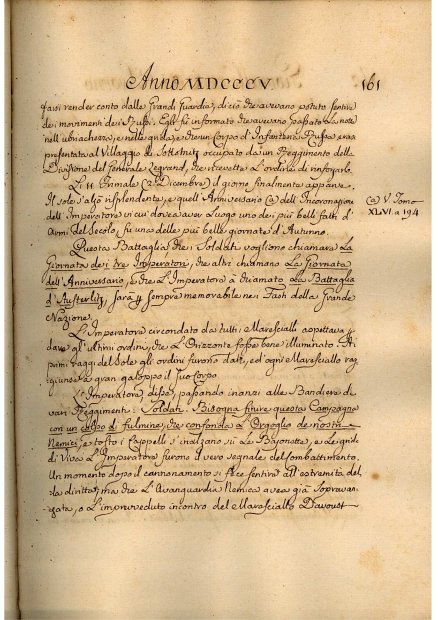 Anno MDCCCV.
161
farsi render conto dalle Grandi Guardie, di ciò che avevano potuto sentire
dei movimenti dei Russi. Egli fù informato che avevano passata la notte
nell'ubriachezza, e nelle grida, e che un Corpo d'Infanteria Russa erasi
presentata al Villaggio di Sokolnitz occupato da un Reggimento della
Divisione del Generale Legrand, che ricevette l'ordine di rinforzarlo.
Li 11 Frimale (2. Dicembre) il giorno finalmente apparve.
Il sole s'alzò risplendente, e quell'Anniversario (a) dell'Incoronazione
dell'Imperatore in cui dovea aver Luogo uno dei più belli fatti d'
Armi del Secolo, fù una delle più belle giornate d'Autunno.
(a) V. Tomo
XLVI. a 194
Questa Battaglia che i Soldati vogliono chiamare La
Giornata dei tre Imperatori, che altri chiamano La Giornata
dell'Anniversario, e che L'Imperatore à chiamato La Battaglia
d'Austerlitz, sarà sempre memorabile nei Fasti della Grande
Nazione.
L'Imperatore circondato da tutti i Marescialli aspettava p
dare gl'ultimi ordini, che L'Orizzonte fosse bene illuminato. Ai
primi raggi del Sole gli ordini furono dati, ed ogni Maresciallo rag-
giunse a gran galoppo il suo Corpo.
L'Imperatore disse, passando inanzi alle Bandiere di
vari Reggimenti: Soldati. Bisogna finire questa Campagna
con un colpo di fulmine, che confonda L'Orgoglio de nostri
Nemici, e tosto i Cappelli s'inalzano sù Le Bajonette, e Le grida
di Viva L'Imperatore furono il vero segnale del combattimento.
Un momento dopo il cannonamento si fece sentire all'estremità del-
la diritta, ma che L'Avanguardia Nemica avea già sopravan-
zata, o L'impreveduto incontro del Maresciallo Davoust